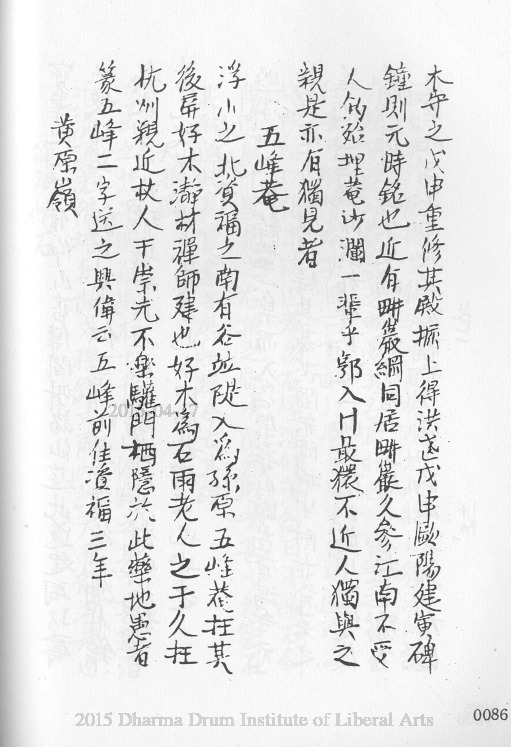 木守之戊申重修其殿振上得洪武戊申歐陽建寅碑
鐘則元時銘也近有畊巖綱同居畊巖久參江南不受
人飭殆埋菴汾瀾一輩乎鄂入最不近人獨與之
親是亦有獨見者
五峰菴
浮小之北資福之南有谷竝陡入為孫原五峰菴在其
後屏好木濟材禪師建也好木為石雨老人之子久在
杭州親近杖人于崇光不樂驩門栖隱於此藥地愚者
篆五峰二字送之興偉云五峰前住資福三年
黄原嶺
2015 Dharma Drum Institute of Liberal Arts
0086